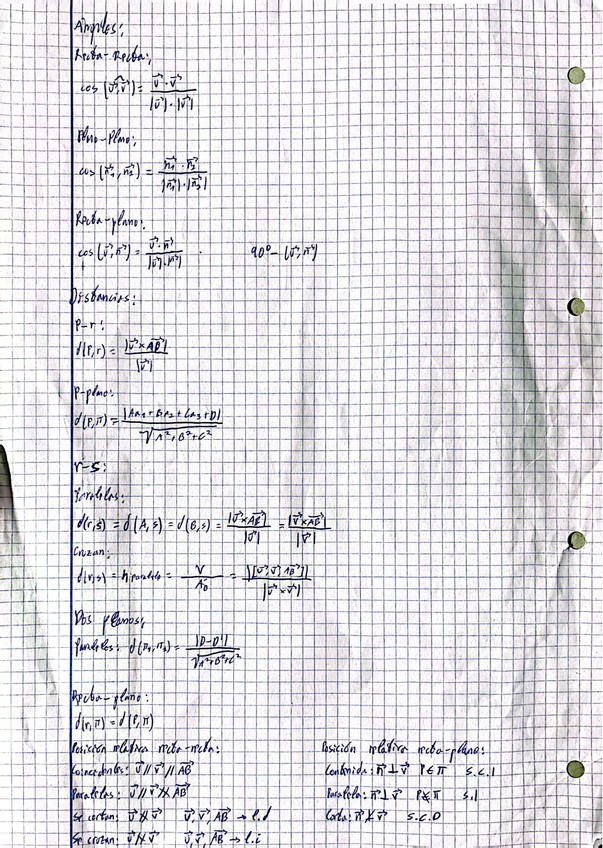 Ángulos:
Recta-Recta:
cos (u⃗,v⃗) = u⃗·v⃗ / |u⃗|·|v⃗|
Plano-Plano:
cos (n⃗₁, n⃗₂) = n⃗₁·n⃗₂ / |n⃗₁|·|n⃗₂|
Recta-plano:
cos (v⃗, n⃗) = v⃗·n⃗ / |v⃗|·|n⃗| 90º - (v⃗, n⃗)
Distancias:
P-r:
d(P,r) = |v⃗×AB⃗| / |v⃗|
P-plano:
d(P,π) = |Aa₁+Ba₂+Ca₃+D| / √A²+B²+C²
r-s:
Paralelas:
d(r,s) = d(A,s) = d(B,s) = |u⃗×AB⃗| / |u⃗| = |v⃗×AB⃗| / |v⃗|
Cruzan:
d(r,s) = h paralelo = V / A = |[u⃗,v⃗,AB⃗]| / |u⃗×v⃗|
Dos planos:
Paralelos: d(π₁,π₂) = |D-D'| / √A²+B²+C²
Recta-plano:
d(r,π) = d(P,π)
Posición relativa recta-recta:
Coincidentes: u⃗ // v⃗ // AB⃗
Paralelas: u⃗ // v⃗ ∦ AB⃗
Se cortan: u⃗ ∦ v⃗ u⃗,v⃗,AB⃗ → l.d
Se cruzan: u⃗ ∦ v⃗ u⃗,v⃗,AB⃗ → l.i
Posición relativa recta-plano:
Contenida: n⃗ ⊥ v⃗ P∈π S.C.I
Paralela: n⃗ ⊥ v⃗ P∉π S.I
Corta: n⃗ ⊥̸ v⃗ S.C.D